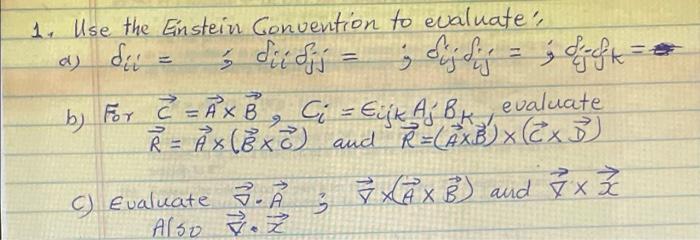 1. Use the Einstein Convention to evaluate:
a) δii = ; δii δjj = ; δij δij = ; δij δjk =
b) For C⃗ = A⃗ x B⃗, Ci = ϵijk Aj Bk, evaluate
R⃗ = A⃗ x (B⃗ x C⃗) and R⃗ = (A⃗xB⃗) x (C⃗ x D⃗)
c) Evaluate ∇⃗ . A⃗ ; ∇⃗ x (A⃗ x B⃗) and ∇⃗ x x⃗
Also ∇⃗ . x⃗